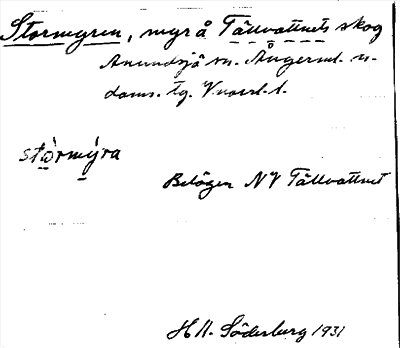 Stormyren, myr å Tällvattnets skog
Anundsjö sn. Ångerml. n.
doms. tg. Vnorrl. l.
stòrmýra
Belägen NV Tällvattnet
H. Söderberg 1931